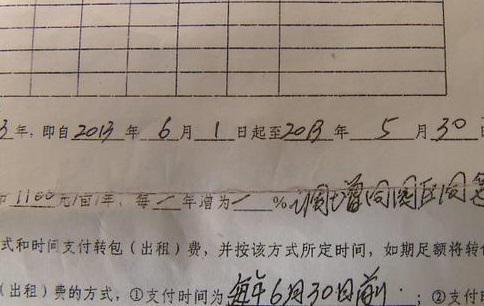 3年,即自2013年6月1日起至2013年5月30日
1100元/亩/年,每一年增为一%
式和时间支付转包(出租)费,并按该方式所定时间,如期足额将转
(出租)费的方式,①支付时间为每年6月30日前;②支付